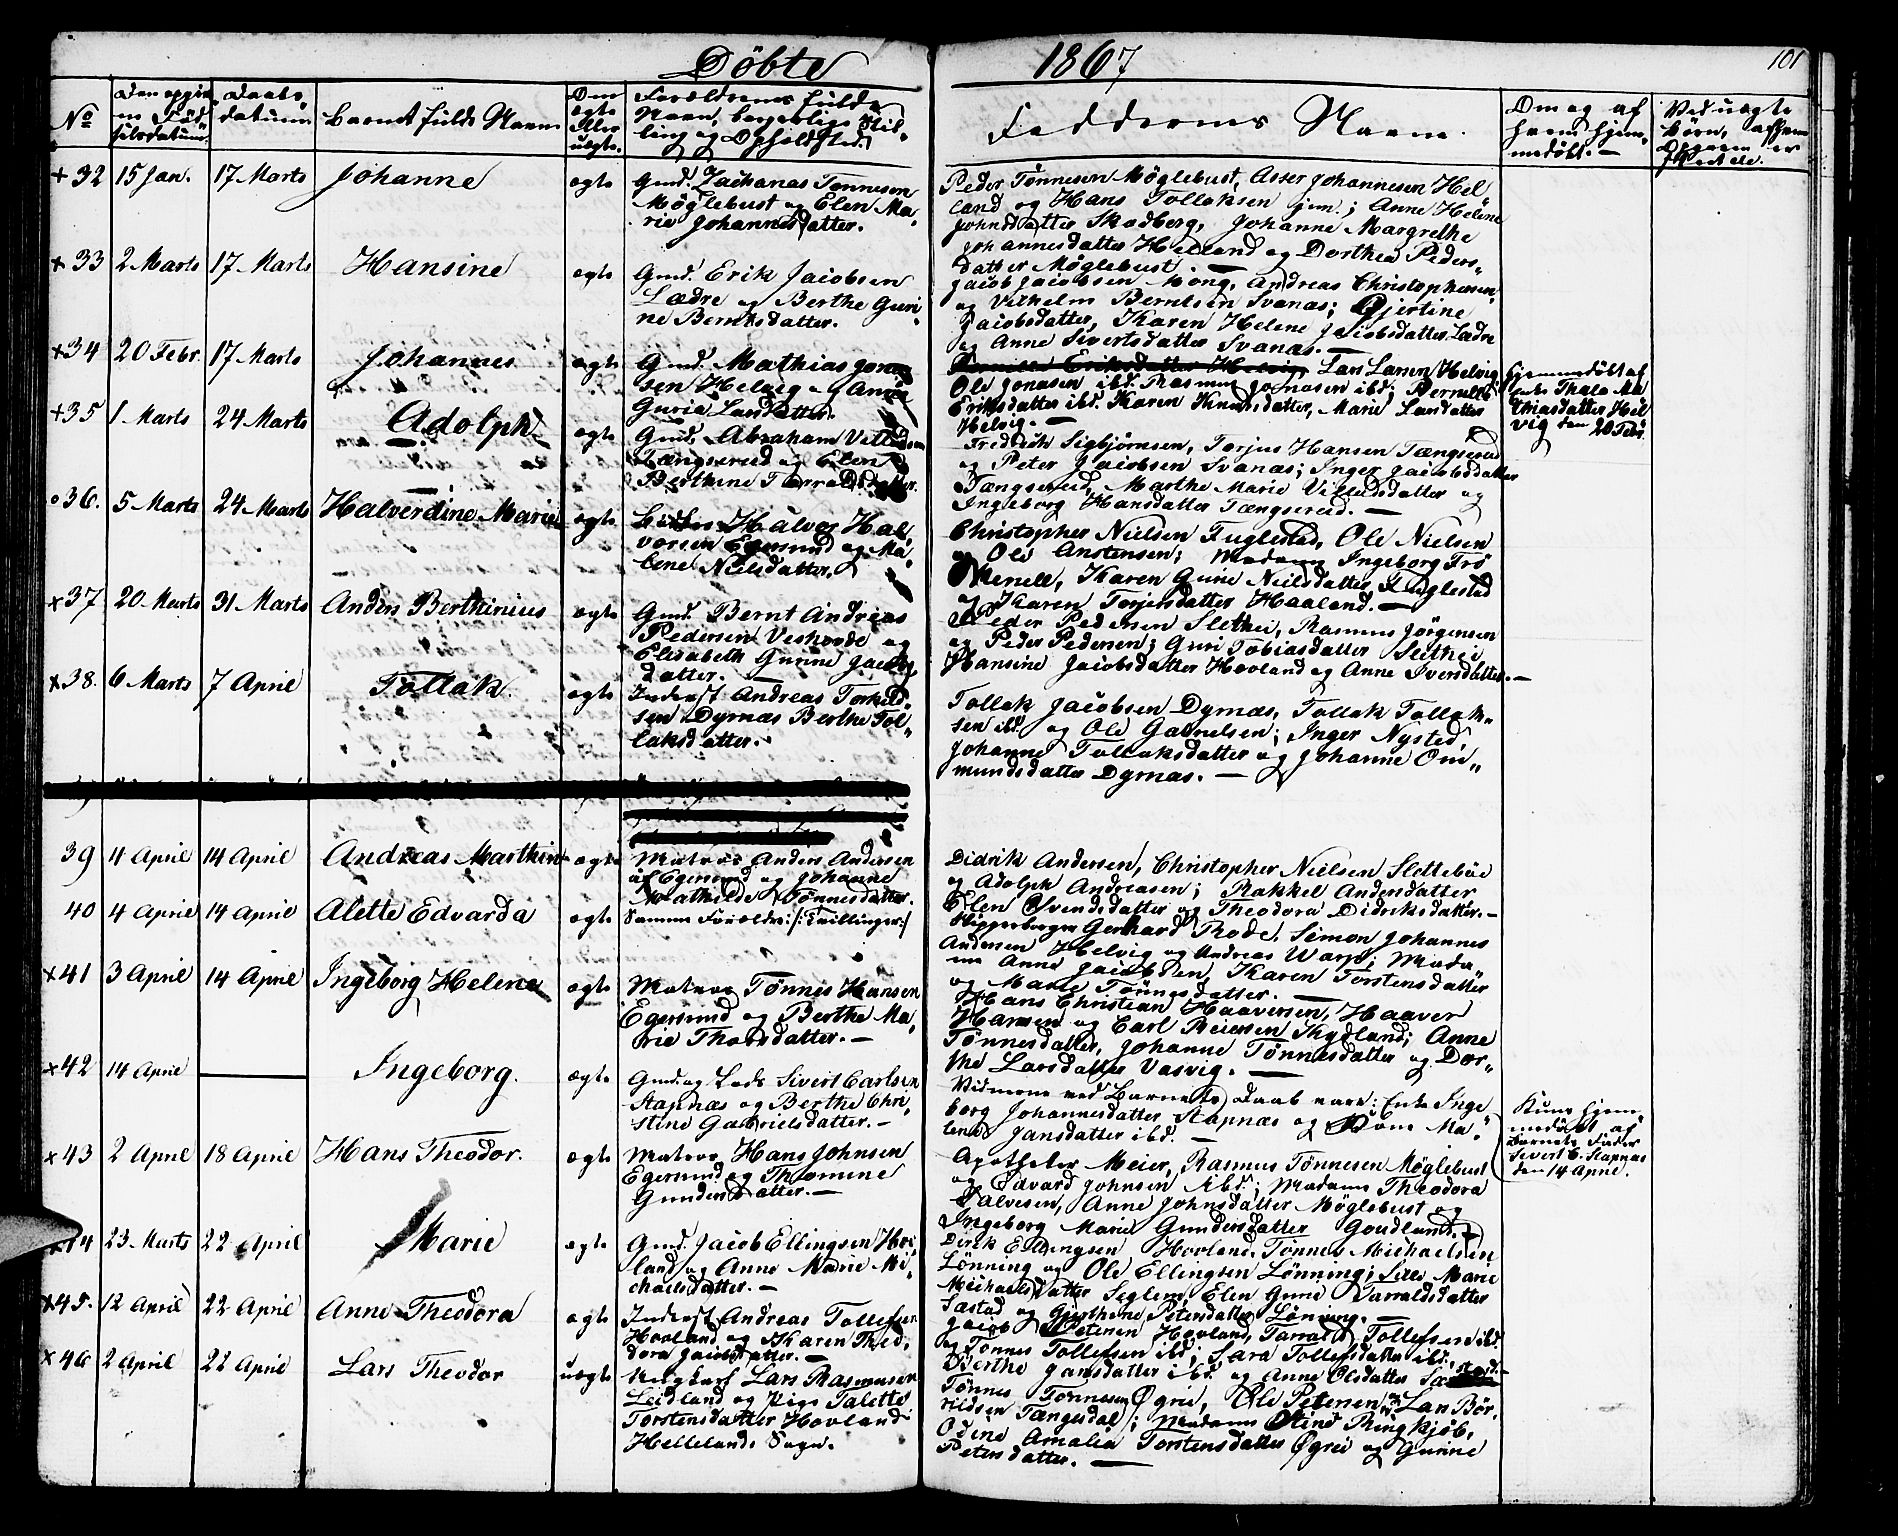 Döbte 1867
101
No
Daabs-
datum
Barnets fulde Navn
Forældrenes fulde
Navn, borgerlige Stil-
ling og Opholdsted.
Faddernes Navne.
Om og af
hvem hjem-
medöbt. —
Ved uægte
Börn,
+32 15 Jan. 17 Marts Johanne ægte
Gmd. Zacharias Tönnesen
Möglebust og Elen Ma-
rie Johannesdatter.
Peder Tönnesen Möglebust, Asser Johannesen Hel
land og Hans Tollaksen jun.; Anne Helene
Johnsdatter Skadberg, Johanne Margrethe
Johannesdatter Helland og Dorthea Peders-
datter Möglebust. —
+33 2 Marts 17 Marts Hansine ægte
Gmd. Erik Jacobsen
Lædre og Berthe Guri-
ne Berntsdatter.
Jacob Jacobsen Mong, Andreas Christophersen
og Vilhelm Berntsen Svanæs; Gjertine
Jacobsdatter, Karen Helene Jacobsdatter Lædre
og Anne Sivertsdatter Svanæs. —
+34 20 Febr. 17 Marts Johannes ægte
Gmd. Mathias Jonas
sen Helvig og Anne
Guria Larsdatter.
Pernille Eriksdatter Helvig Lars Larsen Helvig
Ole Jonasen ibd. Rasmus Jonasen ibd; Pernille
Eriksdatter ibd. Karen Knutsdatter, Marie Larsdatter
Helvig. —
Hjemmedöbt af
Enke Thala Ma
thiasdatter Hel
vig den 20 Febr.
+35 1 Marts 24 Marts Adolph ægte
Gmd. Abraham Villadsen
Tængsereid og Elen
Berthine Tarraldsdatter.
Fredrik Sigbjörnsen, Torjus Hansen Tængsereid
og Peter Jacobsen Svanæs; Inger Jacobsdatter
Tængsereid, Marthe Marie Villadsdatter og
Ingeborg Hansdatter Tængsereid. —
36. 5 Marts 24 Marts Halverdine Marie ægte
Halvor Hal-
vorsen Egersund og Ma-
lene Nielsdatter.
Christopher Nielsen Fuglestad, Ole Nielsen
og Ole Anstensen; Madame Ingeborg Frö
Menell, Karen Gurie Nielsdatter Fuglestad
og Karen Torjersdatter Haaland. —
x37 20 Marts 31 Marts Anders Berthinius ægte
Gmd. Bernt Andreas
Pedersen Veshovde og
Elisabeth Gurine Jacobs
datter. —
Peder Pedersen Slethei, Rasmus Jörgensen
og Peder Pedersen; Guri Tobiasdatter Slethei
Hansine Jacobsdatter Hovland og Anne Iversdatter. —
x38. 6 Marts 7 April Tollak. ægte
Inderst Andreas Torkild-
sen Dyrnæs Berthe Tol-
laksdatter.
Tollak Jacobsen Dyrnæs, Tollak Tollak-
sen ibd. og Ole Gabrielsen; Inger Nysted,
Johanne Tollaksdatter og Johanne Om-
mundsdatter Dyrnæs. —
39 4 April 14 April Andreas Marthin ægte
Matros Anders Andersen
af Egersund og Johanne
Mathilde Tönnesdatter.
Didrik Andersen, Christopher Nielsen Sletteböe
og Adolph Andreasen; Rakkel Andersdatter
Elen Svendsdatter og Theodora Didriksdatter. —
40 4 April 14 April Alette Edvarda ægte
Samme Forældre: /: Tvillinger :/
Skipperborger Gerhard Rode, Simon Johannes
Andersen Helvig og Andreas Warp; Mada
me Anne Jacobsen, Karen Torstensdatter
og Marie Tönnesdatter. —
x41 3 April 14 April Ingeborg Helene ægte
Matros Tönnes Hansen
Egersund og Berthe Ma-
rie Thorsdatter. —
Hans Christian Haaversen, Haaver
Hansen og Carl Reiersen Rydland; Anne
Tönnesdatter, Johanne Tönnesdatter og Dor-
the Larsdatter Vasvig. —
x42 14 April — Ingeborg. ægte
Gmd. og Lods Sivert Carlsen
Stapnæs og Berthe Chri-
stine Gabrielsdatter. —
Vidnerne ved Barnets Daab vare: Enke Inge-
borg Johannesdatter Stapnæs og Kone Ma-
lene Jansdatter ibd. —
Kun hjem-
medöbt af
Barnets Fader
Sivert C. Stapnæs
den 14 April.
x43 2 April 18 April Hans Theodor. ægte
Matros Hans Johnsen
Egersund og Thomine
Gundersdatter. —
Apotheker Meier, Rasmus Tönnesen Möglebust
og Edvard Johnsen ibd; Madame Theodora
Salvesen, Anne Johnsdatter Möglebust og
Ingeborg Marie Gundersdatter Goudland. —
x44 23 Marts 22 April Marie ægte
Gmd. Jacob Ellingsen Hov-
land og Anne Marie Mi-
chaelsdatter. —
Dirik Ellingsen Hovland, Tönnes Michaelsen
Lönning og Ole Ellingsen Lönning; Sille Marie
Michaelsdatter Seglem, Elen Gurie Tarraldsdatter
Sæstad og Gjerthine Petersdatter Lönning. —
x45. 12 April 22 April Anne Theodora ægte
Inderst Andreas Tollefsen
Hovland og Karen Theo-
dora Jacobsdatter. —
Jacob Petersen Hovland, Tarrald Tollefsen ibd.
og Tönnes Tollefsen ibd; Sara Tollefsdatter ibd,
Berthe Jansdatter ibd. og Anne Olsdatter Sæstad. —
x46 2 April 22 April Lars Theodor uægte
Ungkarl Lars Rasmussen
Leidland og Pige Talette
Torstensdatter Hovland
Helleland Sogn.
Tönnes Tönnesen Ögrei, Ole Petersen, Lars Bör-
rildsen Tængesdal; Madame Stine Ringkjöb,
Odine Amalia Torstensdatter Ögrei og Gurine
Petersdatter. —